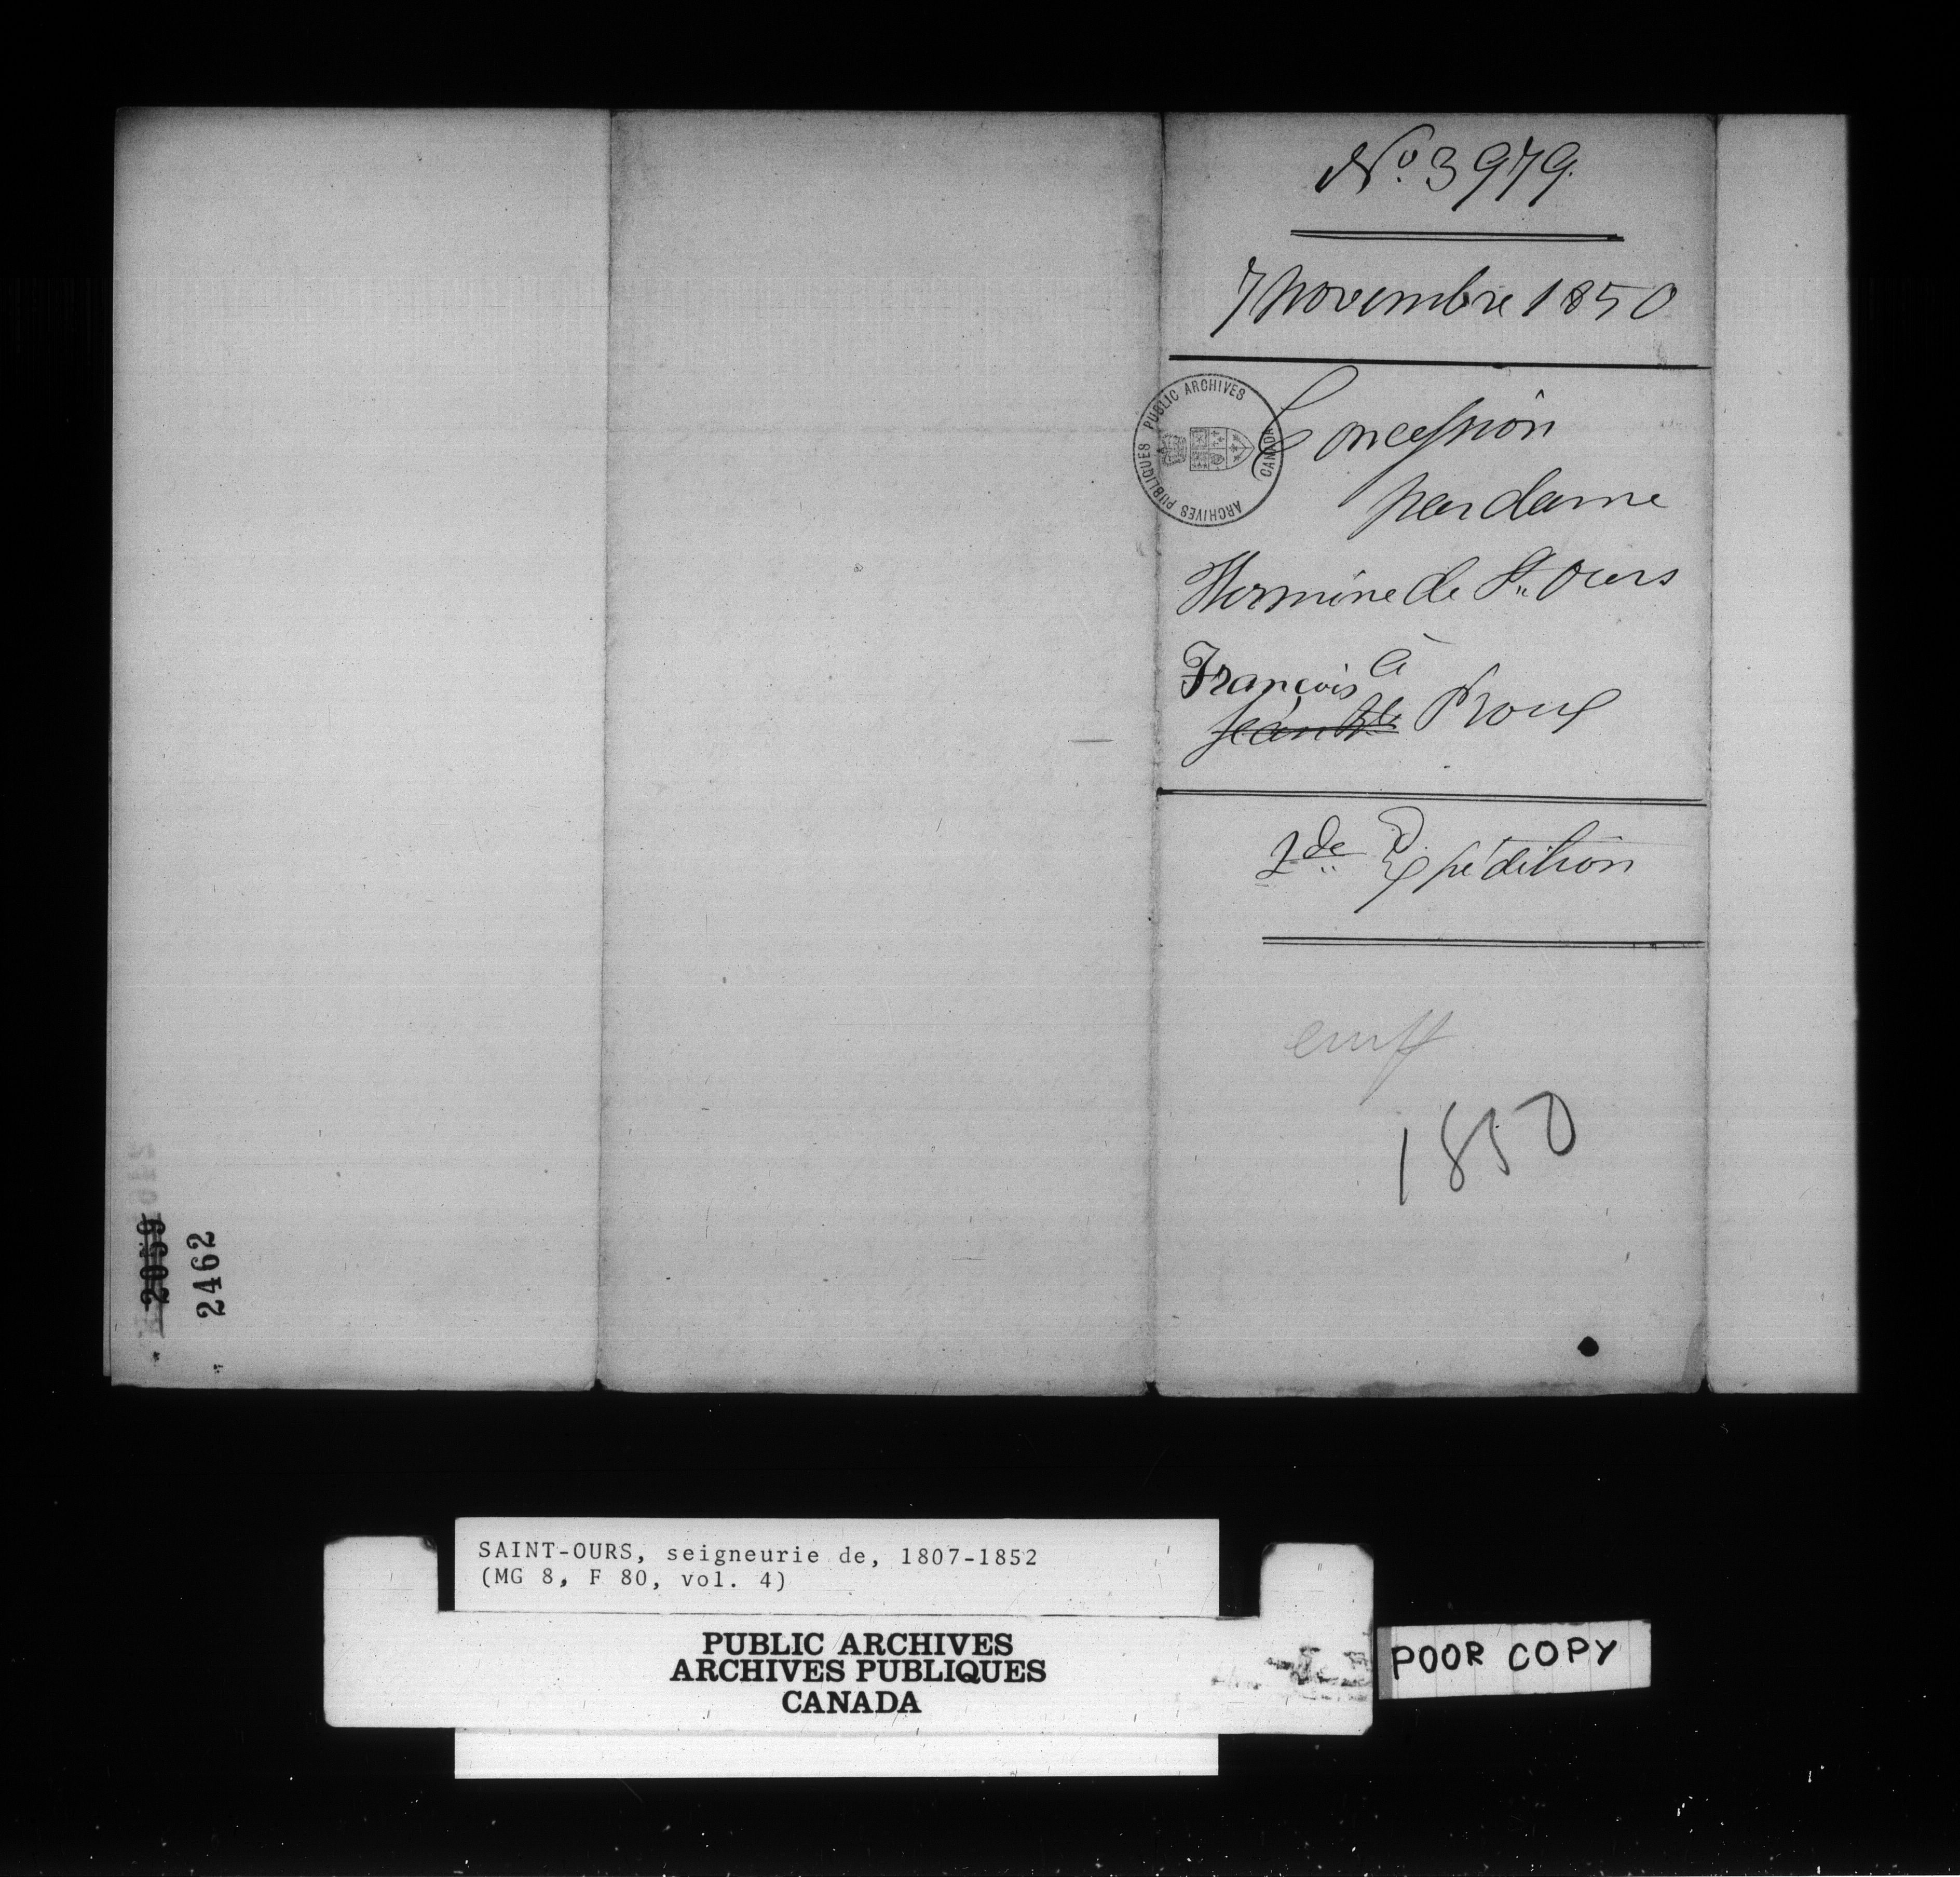 No. 3979.
7 Novembre 1850
PUBLIC ARCHIVES
ARCHIVES PUBLIQUES
CANADA
Concession
par dame
Hermine de St. Ours
à
François
Jean Bte Proulx
2de Expédition
1850
2462
SAINT-OURS, seigneurie de, 1807-1852
(MG 8, F 80, vol. 4)
PUBLIC ARCHIVES
ARCHIVES PUBLIQUES
CANADA
POOR COPY